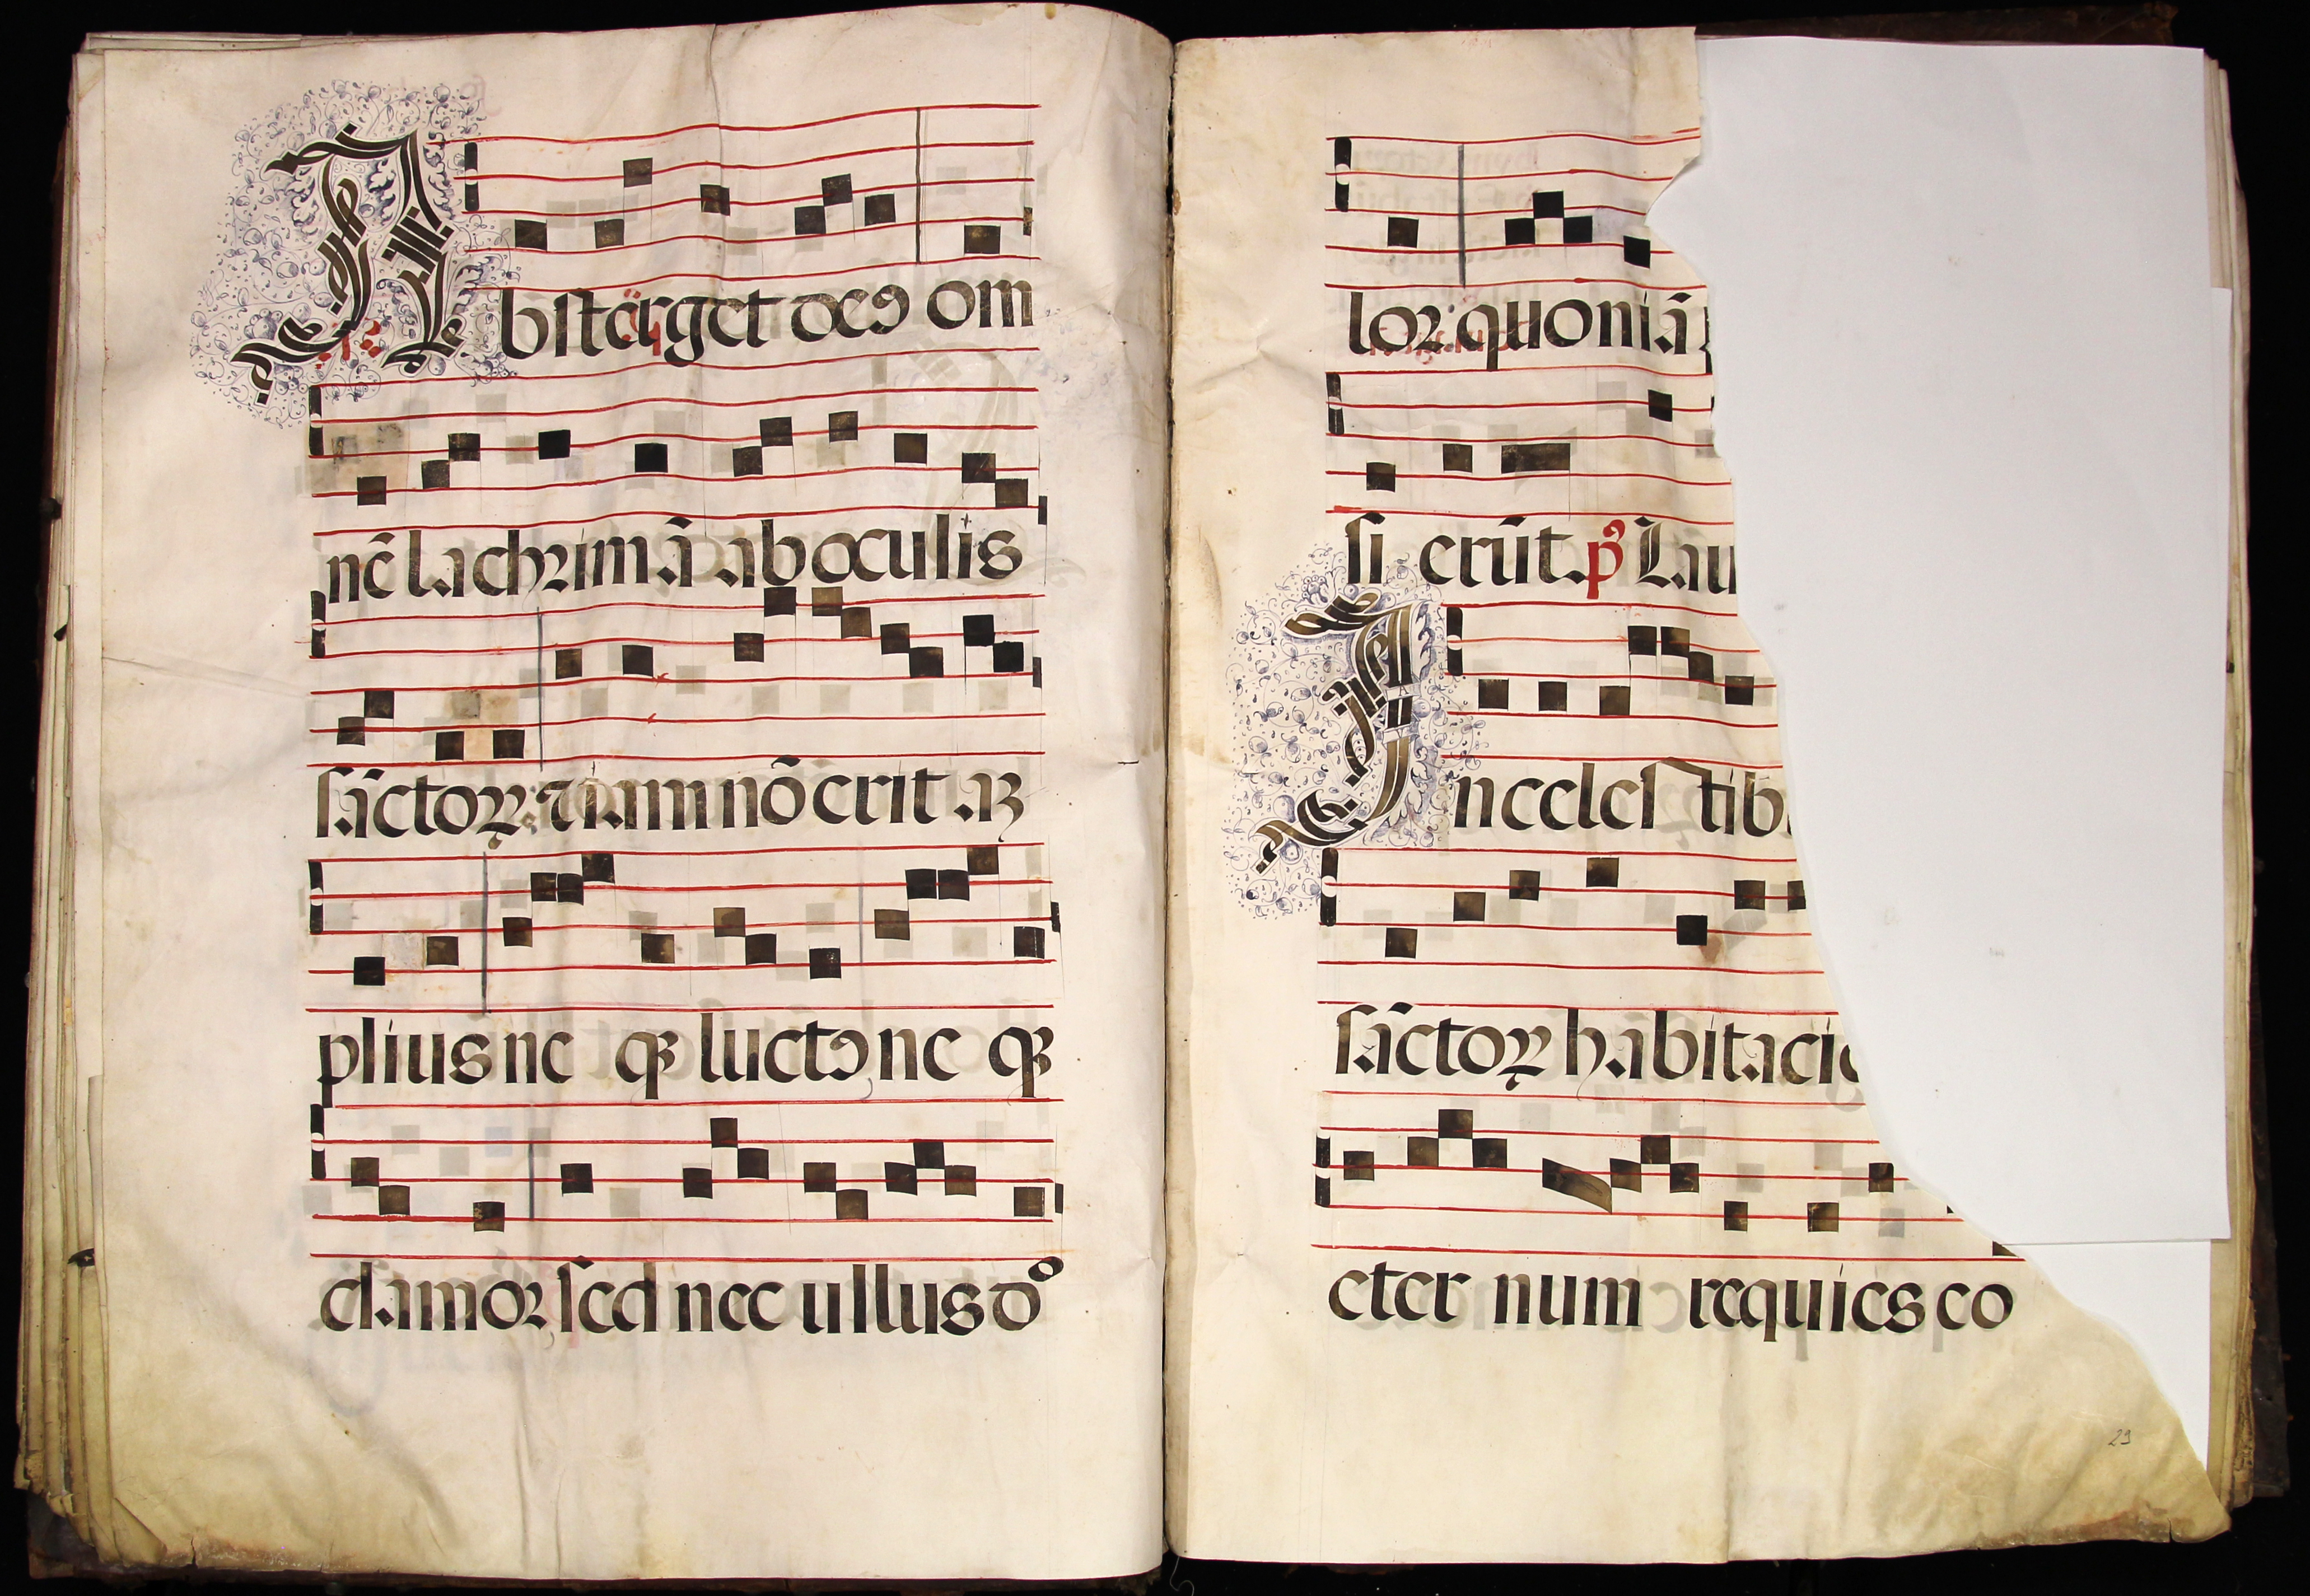 Absterget deꝯ om
nē lachrimā ab oculis
sāctoꝝ: ⁊ iam nō erit aꝫ
plius neqꝫ luctꝯ neqꝫ
clamor, sed nec ullus do
lor: quoniā
si erūt. pꝰ Lau
In celestib
sāctoꝝ habitacio
eternum requies eo
29